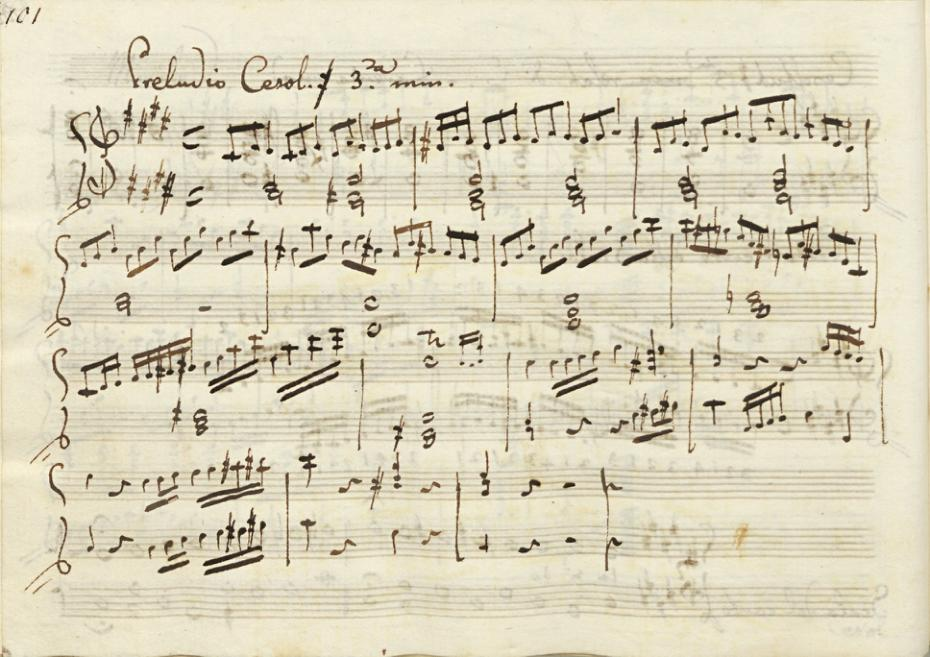 101
Preludio Cesol.# 3.ª min.